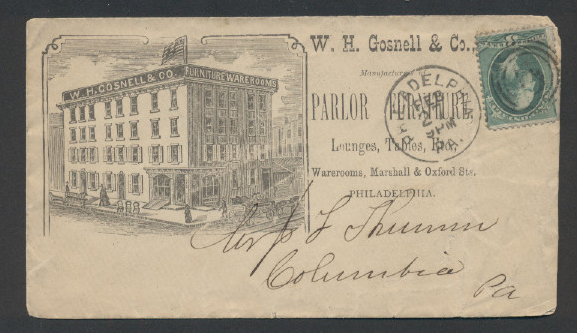 W. H. GOSNELL & CO. FURNITURE WAREROOMS
W. H. Gosnell & Co.,
Manufacturers of
PARLOR FURNITURE,
Lounges, Tables, Etc.,
Warerooms, Marshall & Oxford Sts.
PHILADELPHIA.
PHILADELPHIA
FEB
PM
PA.
Columbia
Pa